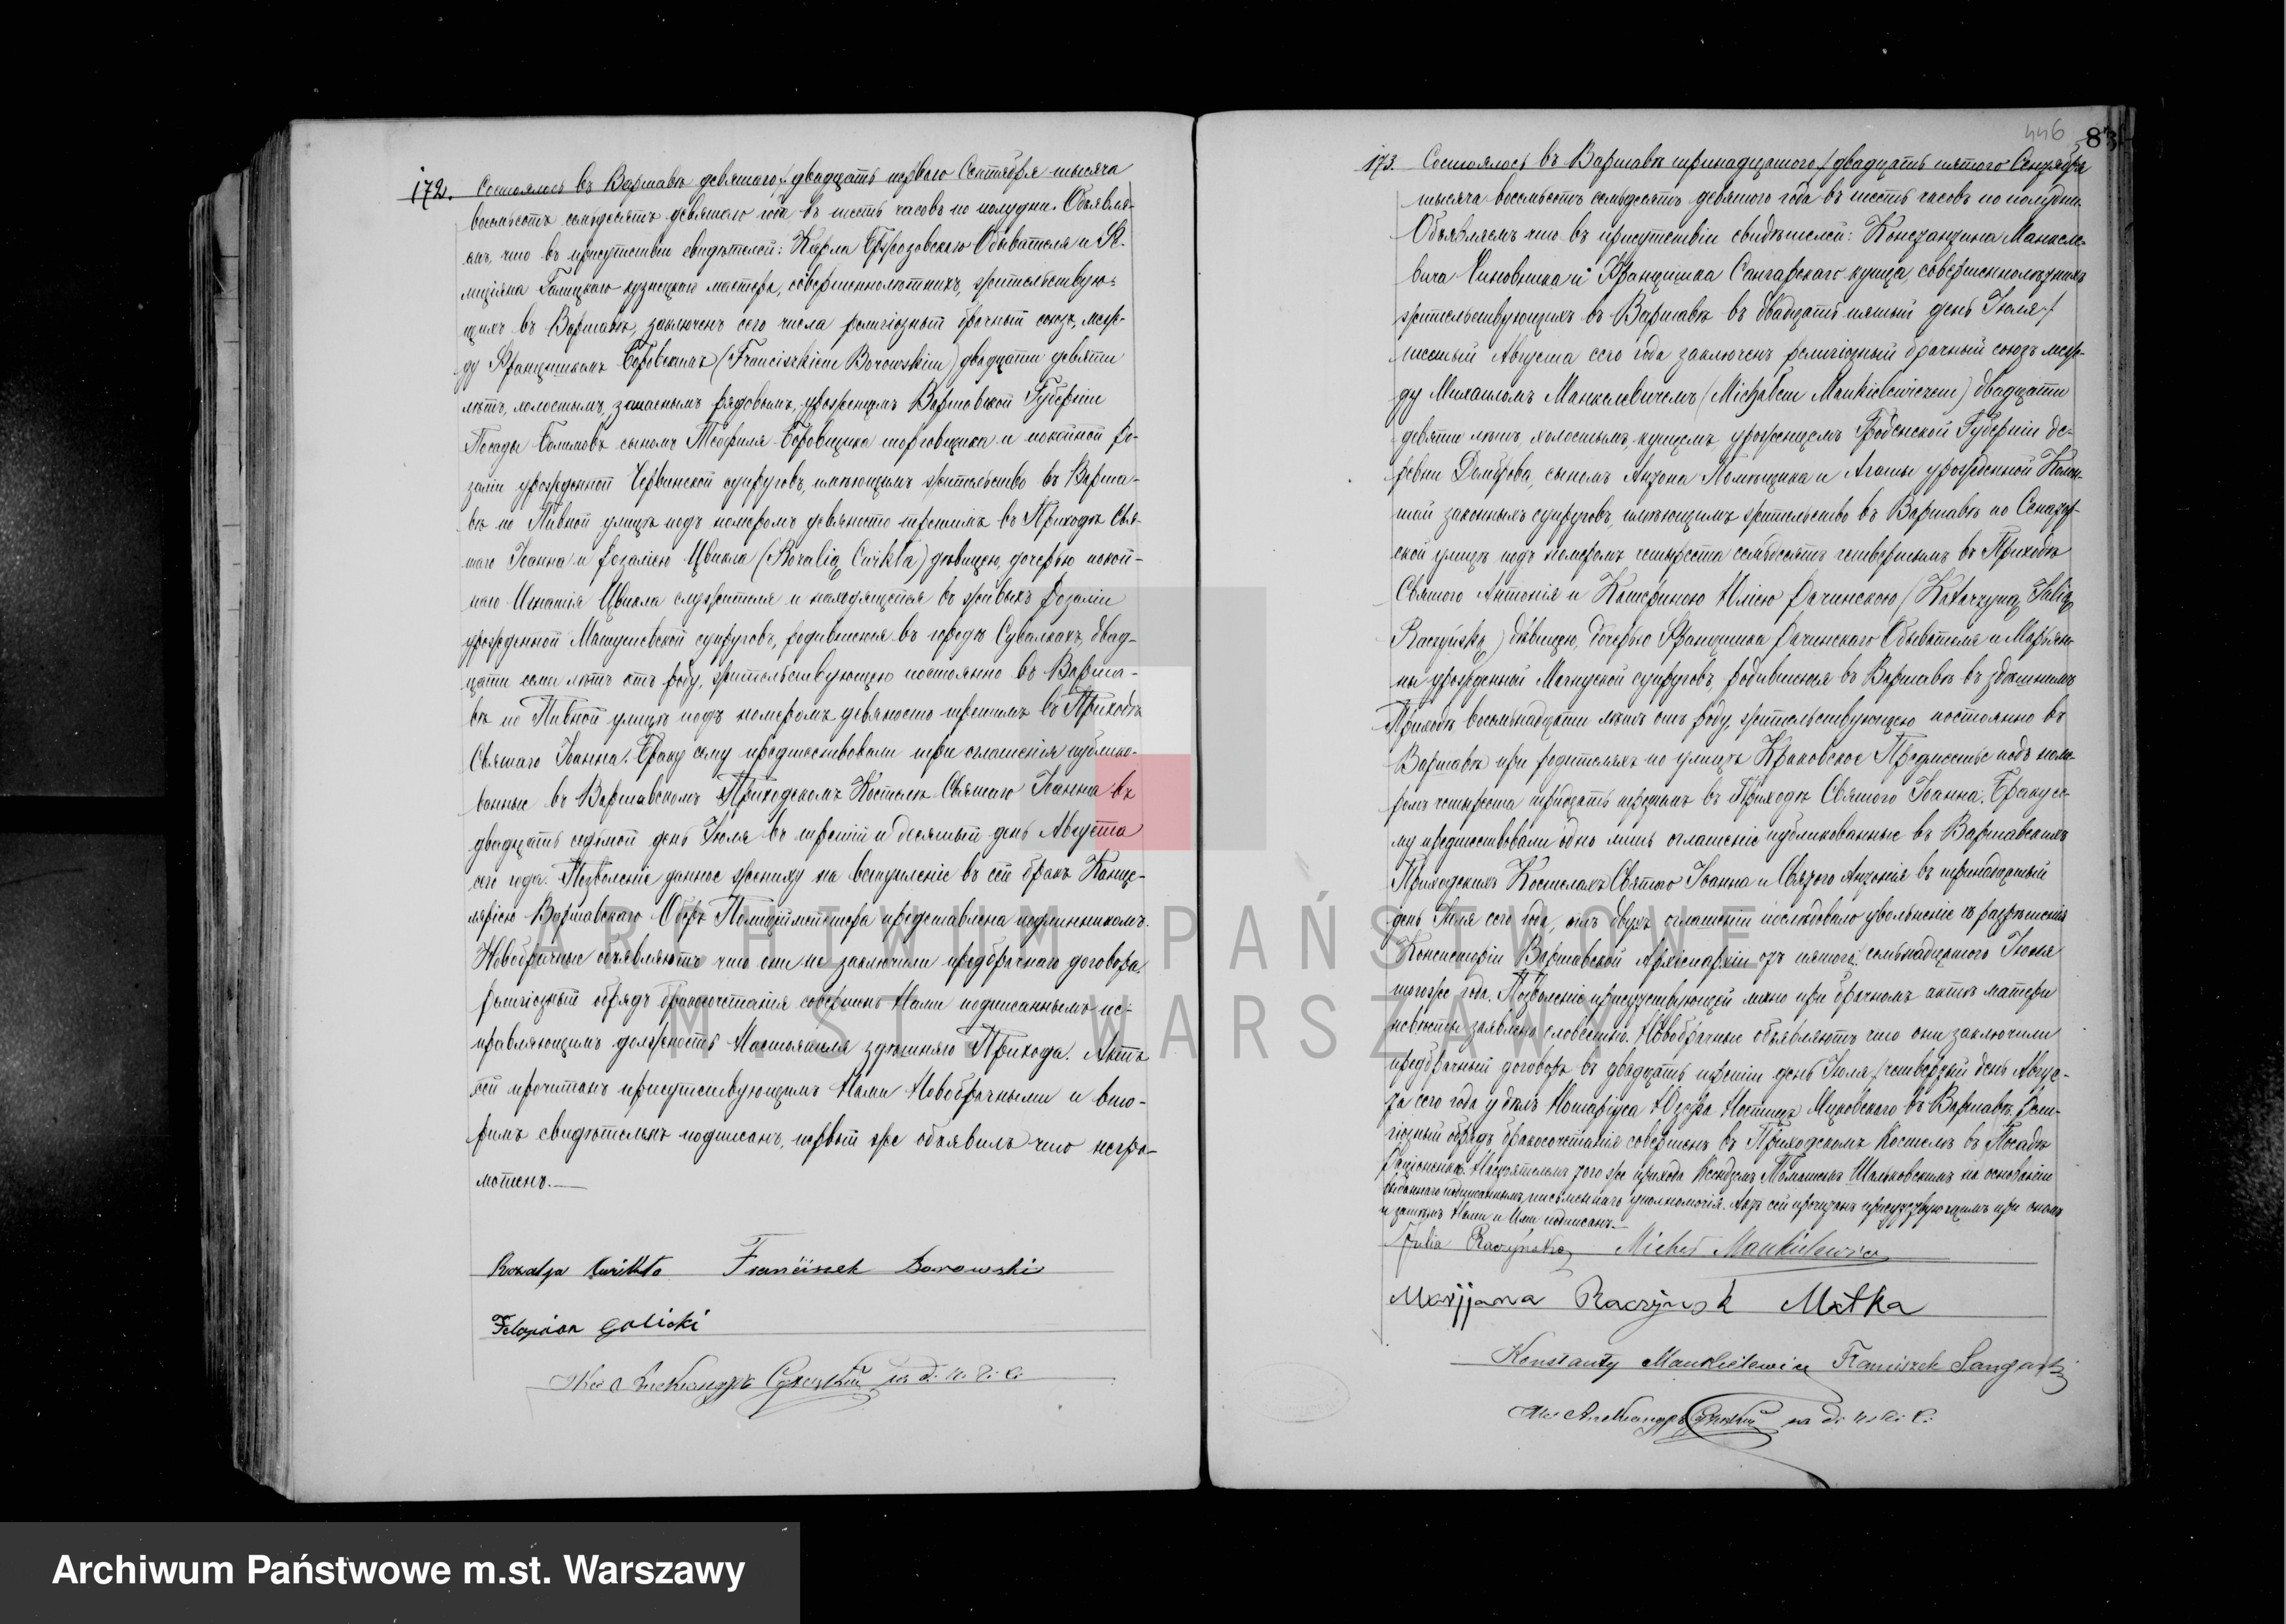 172. Состоялось въ Варшавѣ девятаго / двадцать перваго Сентября тысяча
восемьсотъ семьдесятъ девятаго года въ шесть часовъ по полудни. Объявля-
емъ, что въ присутствіи свидѣтелей: Карла Обывателя и Фе-
лиціяна Голицкаго кузнецкаго мастера, совершеннолѣтнихъ, жительствую-
щихъ въ Варшавѣ, заключенъ сего числа религіозный брачный союзъ, меж-
ду Францишкомъ Боровскимъ (Franciszkiem Borowskim) двадцати девяти
лѣтъ, холостымъ, запаснымъ рядовымъ, урожденцемъ Варшавской Губерніи
Посады Болимовъ сыномъ Теофиля торговщика и покойной Ро-
заліи урожденной Червинской супруговъ, имѣющимъ жительство въ Варша-
вѣ по Пивной улицѣ подъ номеромъ девяносто третьимъ въ Приходѣ Свя-
таго Іоанна и Розаліею Цвикла (Rozalią Ćwikła) дѣвицею, дочерью покой-
наго Игнатія Цвикла служителя и находящейся въ живыхъ Розаліи
урожденной супруговъ, родившеюся въ городѣ Сувалкахъ, двад-
цати семи лѣтъ отъ роду, жительствующею постоянно въ Варша-
вѣ по Пивной улицѣ подъ номеромъ девяносто третьимъ въ Приходѣ
Святаго Іоанна. Браку сему предшествовали три оглашенія публико-
ванные въ Варшавскомъ Приходскомъ Костелѣ Святаго Іоанна въ
двадцать седьмой день Іюля въ третій и десятый день Августа
сего года. Позволеніе данное жениху на вступленіе въ сей бракъ Канце-
ляріею Варшавскаго Оберъ Полиціймейстера представлена подлинникомъ.
Новобрачные объявляютъ что они не заключили предбрачнаго договора.
Религіозный обрядъ бракосочетанія совершенъ Нами подписаннымъ ис-
правляющимъ должность Настоятеля здѣшняго Прихода. Актъ
сей прочитанъ присутствующимъ Нами Новобрачными и вто-
рымъ свидѣтелемъ подписанъ, первый же объявилъ что негра-
мотенъ.
Rozalja Ćwikła Franciszek Borowski
Felicyian Golicki
446 83
173. Состоялось въ Варшавѣ тринадцатаго / двадцать пятаго Сентября
тысяча восемьсотъ семьдесятъ девятаго года въ шесть часовъ по полудни.
Объявляемъ что въ присутствіи свидѣтелей: Константина Манкеле-
вича Чиновника и Францишка Сангарскаго купца, совершеннолѣтнихъ
жительствующихъ въ Варшавѣ въ двадцать пятый день Іюля /
шестый Августа сего года заключенъ религіозный брачный союзъ меж-
ду Михаиломъ Манкелевичемъ (Michałem Mankielewiczem) двадцати
девяти лѣтъ, холостымъ, купцемъ, урожденцемъ Гродненской Губерніи де-
ревни Домброва, сыномъ Антона Помѣщика и Агаты урожденной
законныхъ супруговъ, имѣющимъ жительство въ Варшавѣ по Сенатор-
ской улицѣ подъ номеромъ четыреста семьдесятъ четвертымъ въ Приходѣ
Святаго Антонія и Катериною Юліею Рачинскою (Katarzyną Julią
Raczyńską) дѣвицею, дочерью Францишка Рачинскаго Обывателя и Марьян-
ны урожденной супруговъ, родившеюся въ Варшавѣ въ здѣшнемъ
Приходѣ, восьмнадцати лѣтъ отъ роду, жительствующею постоянно въ
Варшавѣ при родителяхъ по улицѣ Краковское Предмѣстье подъ номе-
ромъ четыреста тридцать первымъ въ Приходѣ Святаго Іоанна. Браку се-
му предшествовали одно лишь оглашеніе публикованные въ Варшавскихъ
Приходскихъ Костелахъ Святаго Іоанна и Святаго Антонія въ тринадцатый
день Іюля сего года, отъ двухъ оглашеній послѣдовало увольненіе съ разрѣшенія
Консисторіи Варшавской Архіепархіи отъ пятаго / семьнадцатаго Іюля
тогоже года. Позволеніе присутствующей лично при брачномъ актѣ матери
невѣсты заявлено словесно. Новобрачные объявляютъ что они заключили
предбрачный договоръ въ двадцать третій день Іюля / четвертый день Авгус-
та сего года у дѣлъ Нотаріуса въ Варшавѣ. Рели-
гіозный обрядъ бракосочетанія совершенъ въ Приходскомъ Костелѣ въ Посадѣ
Настоятелемъ того же прихода Ксендзомъ на основаніи
письменнаго уполномочія. Актъ сей прочитанъ присутствующимъ при ономъ
и затѣмъ Нами и Ими подписанъ.
Julia Raczyńska Michał Mankielewicz
Maryjana Raczyńsk Matka
Konstanty Mankielewicz Franciszek Sangarski
ARCHIWUM PAŃSTWOWE
M.ST. WARSZAWY
Archiwum Państwowe m.st. Warszawy